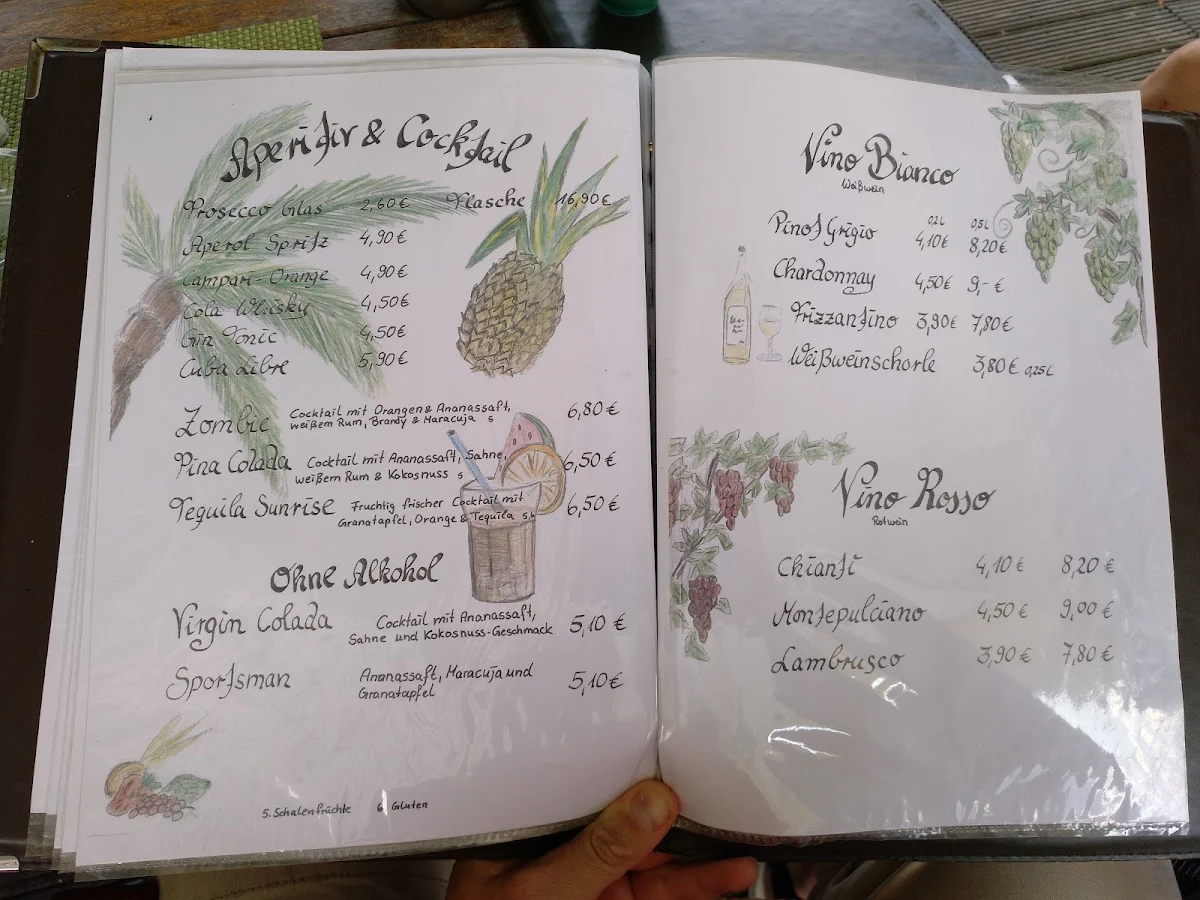 Aperitiv & Cocktail
Prosecco Glas 2,60€ Flasche 16,90€
Aperol Spritz 4,90€
Campari-Orange 4,90€
Cola Whisky 4,50€
Gin Tonic 4,50€
Cuba Libre 5,90€
Zombie Cocktail mit Orangen & Ananassaft, 6,80€
weißem Rum, Brandy & Maracuja 5
Pina Colada Cocktail mit Ananassaft, Sahne, 6,50€
weißem Rum & Kokosnuss 5
Tequila Sunrise Fruchtig frischer Cocktail mit 6,50€
Granatapfel, Orange & Tequila 5,6
Ohne Alkohol
Virgin Colada Cocktail mit Ananassaft, 5,10€
Sahne und Kokosnuss-Geschmack
Sportsman Ananassaft, Maracuja und 5,10€
Granatapfel
5. Schalenfrüchte 6. Gluten
Vino Bianco
Weißwein
0,2L 0,5L
Pinot Grigio 4,10€ 8,20€
Chardonnay 4,50€ 9,-€
Frizzantino 3,90€ 7,80€
Weißweinschorle 3,80€ 0,25L
Vino Rosso
Rotwein
Chianti 4,10€ 8,20€
Montepulciano 4,50€ 9,00€
Lambrusco 3,90€ 7,80€